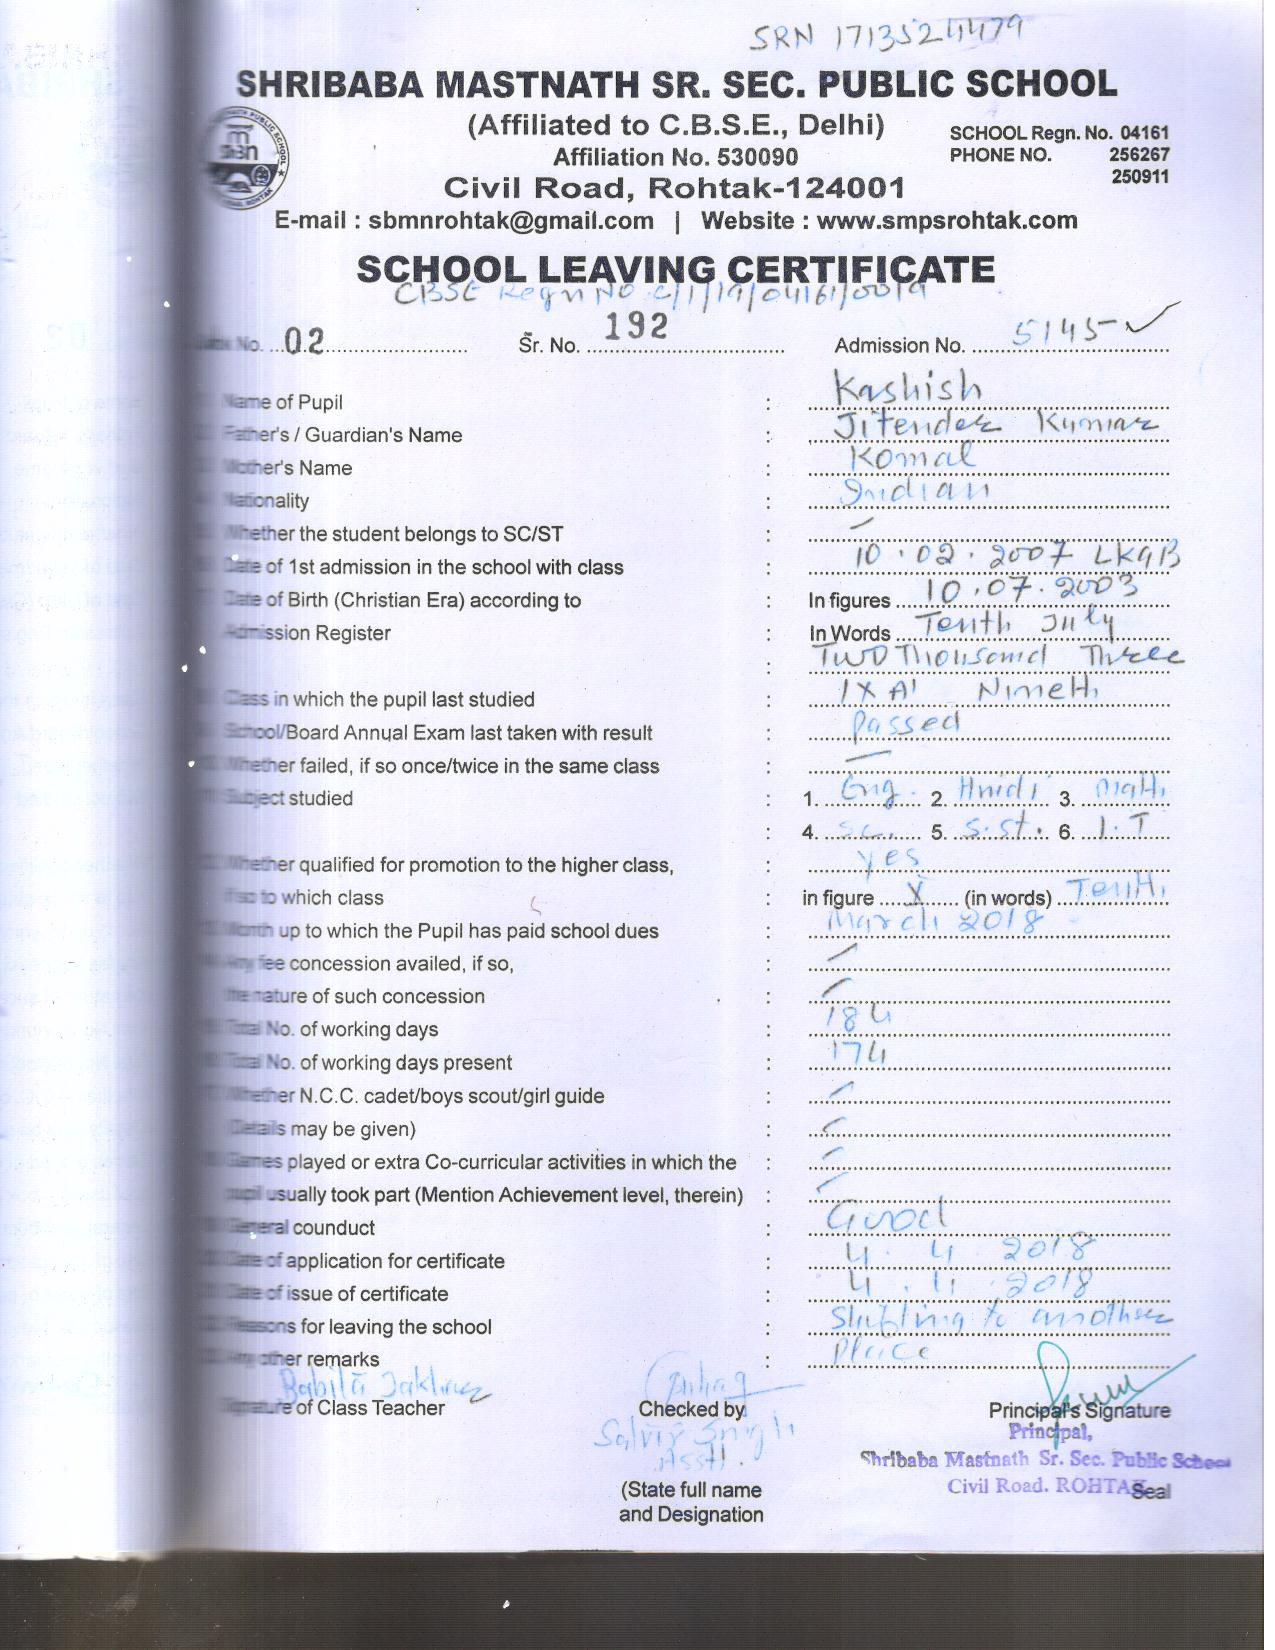 SRN 1713524479
SHRIBABA MASTNATH SR. SEC. PUBLIC SCHOOL
(Affiliated to C.B.S.E., Delhi)
SCHOOL Regn. No. 04161
Affiliation No. 530090
PHONE NO. 256267
250911
Civil Road, Rohtak-124001
E-mail : sbmnrohtak@gmail.com | Website : www.smpsrohtak.com
SCHOOL LEAVING CERTIFICATE
CBSE Regn No C/1/19/04161/0019
No. 02 Sr. No. 192 Admission No. 5145
Name of Pupil : Kashish
Father's / Guardian's Name : Jitender Kumar
Mother's Name : Komal
Nationality : Indian
Whether the student belongs to SC/ST : –
Date of 1st admission in the school with class : 10.02.2007 LKGB
Date of Birth (Christian Era) according to : In figures 10.07.2003
Admission Register : In Words Tenth July
: Two Thousand Three
Class in which the pupil last studied : IX A1 Nineth
School/Board Annual Exam last taken with result : Passed
Whether failed, if so once/twice in the same class : –
Subject studied : 1. Eng. 2. Hindi 3. Math
: 4. Sc. 5. S.St. 6. I.T
Whether qualified for promotion to the higher class, : yes
if so to which class : in figure X (in words) Tenth
Month up to which the Pupil has paid school dues : March 2018
Any fee concession availed, if so, : –
the nature of such concession : –
Total No. of working days : 184
Total No. of working days present : 174
Whether N.C.C. cadet/boys scout/girl guide : –
(Details may be given) : –
Games played or extra Co-curricular activities in which the : –
pupil usually took part (Mention Achievement level, therein) : –
General counduct : Good
Date of application for certificate : 4.4.2018
Date of issue of certificate : 4.4.2018
Reasons for leaving the school : Shifting to another
Any other remarks : Place
Babita Jakhar
Signature of Class Teacher Checked by Principal's Signature
Principal,
Singh
Asstt.
Shribaba Mastnath Sr. Sec. Public School
Civil Road. ROHTAK
Seal
(State full name
and Designation